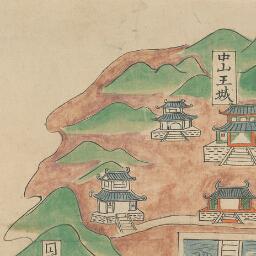 中山王城